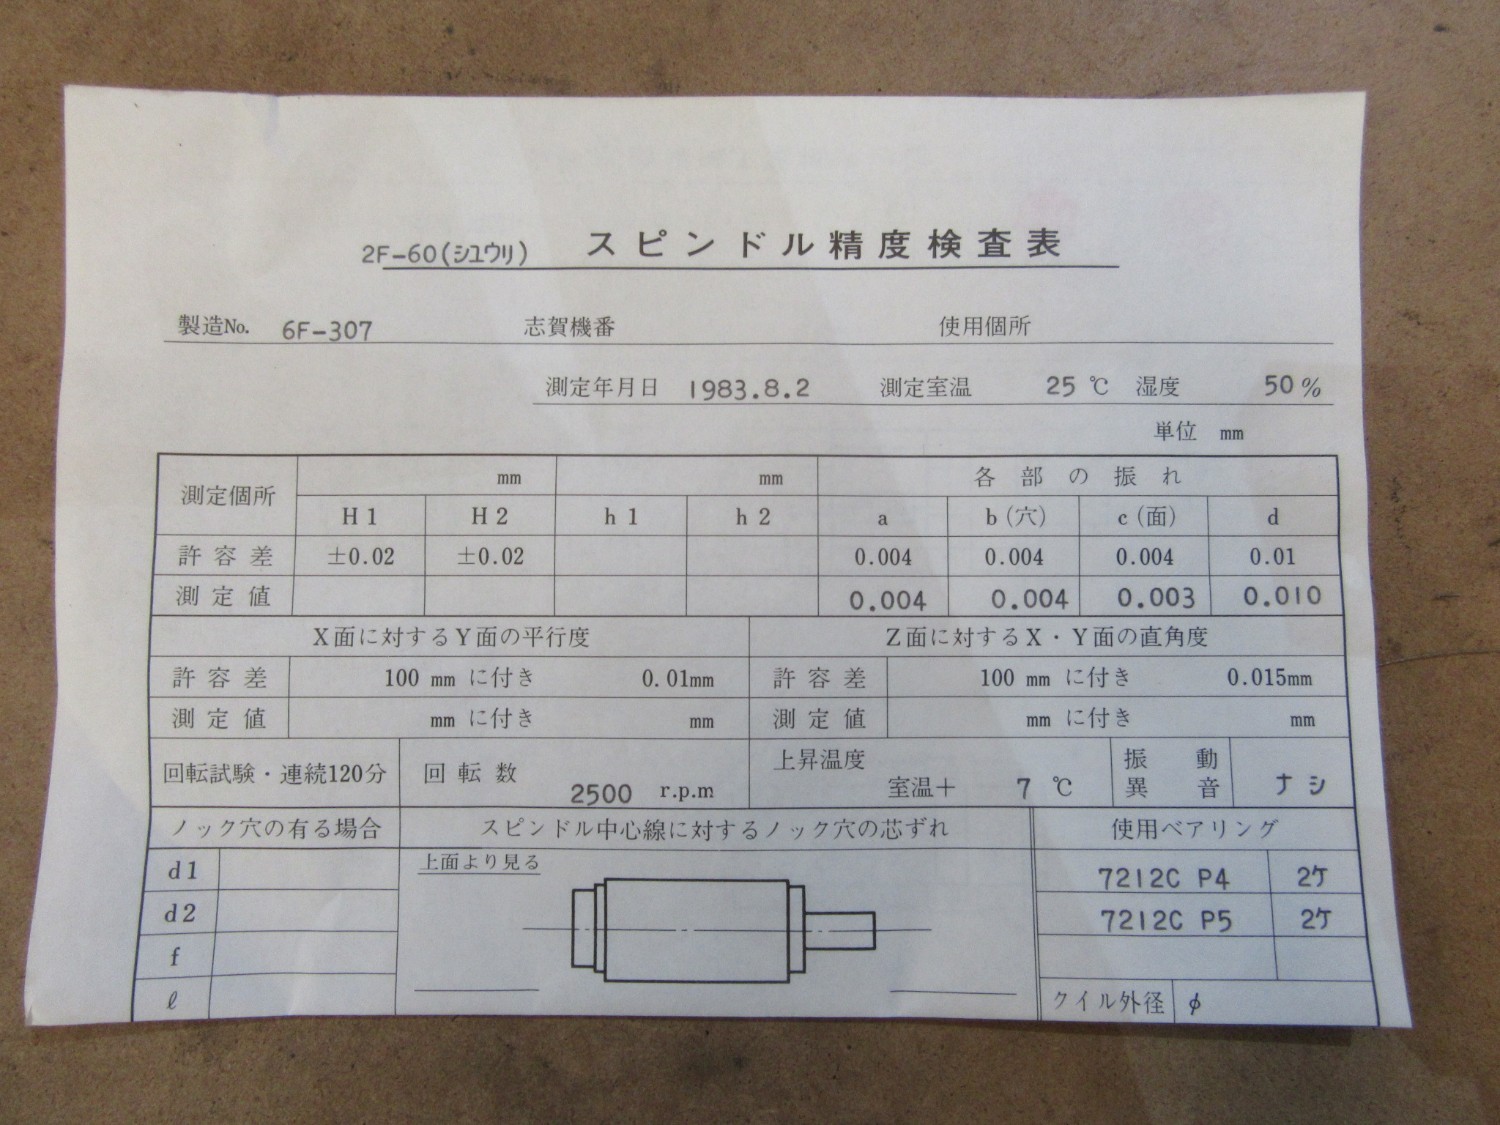 2F-60(シュウリ) スピンドル精度検査表
製造No. 6F-307 志賀機番 使用個所
測定年月日 1983.8.2 測定室温 25 ℃ 湿度 50 %
単位 mm
測定個所 mm mm 各部の振れ
H1 H2 h1 h2 a b(穴) c(面) d
許容差 ±0.02 ±0.02 0.004 0.004 0.004 0.01
測定値 0.004 0.004 0.003 0.010
X面に対するY面の平行度 Z面に対するX・Y面の直角度
許容差 100 mm に付き 0.01mm 許容差 100 mm に付き 0.015mm
測定値 mm に付き mm 測定値 mm に付き mm
回転試験・連続120分 回転数 2500 r.p.m 上昇温度 室温+ 7 ℃ 振動異音 ナシ
ノック穴の有る場合 スピンドル中心線に対するノック穴の芯ずれ 使用ベアリング
d1 上面より見る 7212C P4 2ケ
d2 7212C P5 2ケ
f
ℓ クイル外径 φ